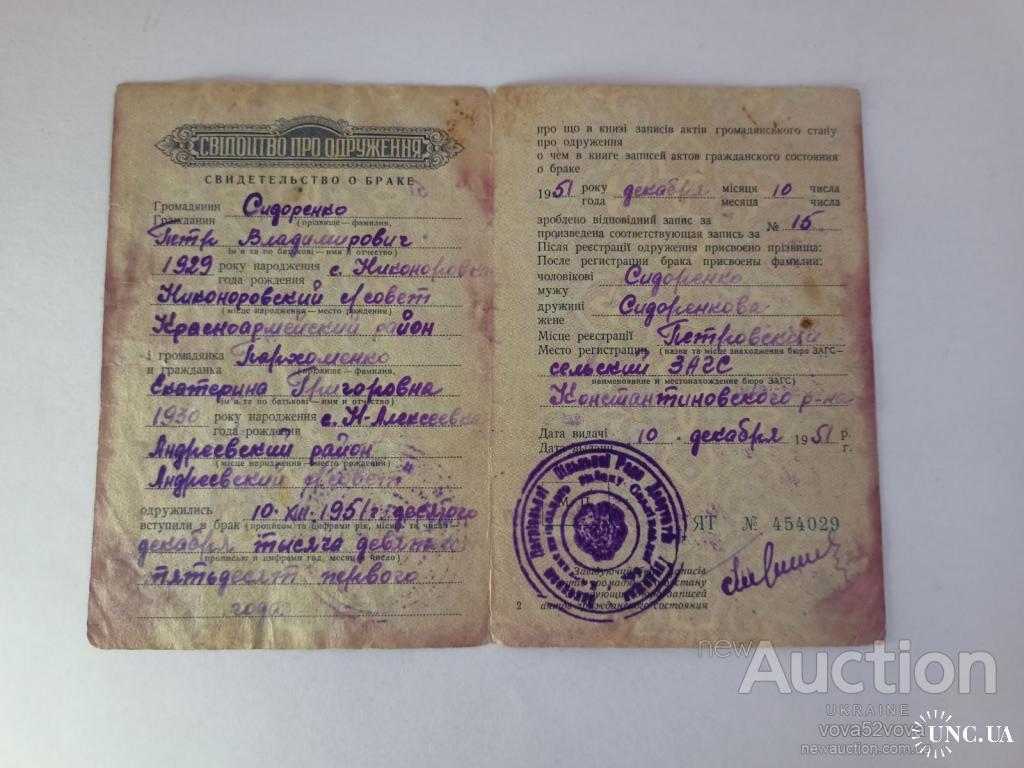 СВІДОЦТВО ПРО ОДРУЖЕННЯ
СВИДЕТЕЛЬСТВО О БРАКЕ
Громадянин Сидоренко
Гражданин (прізвище — фамилия,
Петр Владимирович
ім'я та по батькові — имя и отчество)
1929 року народження с. Никоноровка
года рождения
Никоноровский с/совет
(місце народження — место рождения)
Красноармейский район
і громадянка Пархоменко
и гражданка (прізвище — фамилия,
Екатерина Григоровна
ім'я та по батькові — имя и отчество)
1930 року народження с. Н-Алексеевка
года рождения
Андреевский район
(місце народження — место рождения)
Андреевский с/совет
одружились 10-XII-1951 г. десятого
вступили в брак (прописом та цифрами рік, місяць та число)
декабря тысяча девятьсот
(прописью и цифрами год, месяц и число)
пятьдесят первого
года
про що в книзі записів актів громадянського стану
про одруження
о чем в книге записей актов гражданского состояния
о браке
1951 року декабря місяця 10 числа
года месяца числа
зроблено відповідний запис за № 15
произведена соответствующая запись за
Після реєстрації одруження присвоєно прізвища:
После регистрации брака присвоены фамилии:
чоловікові Сидоренко
мужу
дружині Сидоренкова
жене
Місце реєстрації Петровский
Место регистрации (назва та місце знаходження бюро ЗАГС—
сельский ЗАГС
наименование и местонахождение бюро ЗАГС)
Константиновского р-на
Дата видачі 10 декабря 1951 р.
Дата выдачи г.
М. П.
ЯТ № 454029
Завідуючий бюро записів
актів громадянського стану
Заведующий бюро записей
актов гражданского состояния
2
new Auction
UKRAINE
vova52vova
newauction.com.ua
UNC.UA